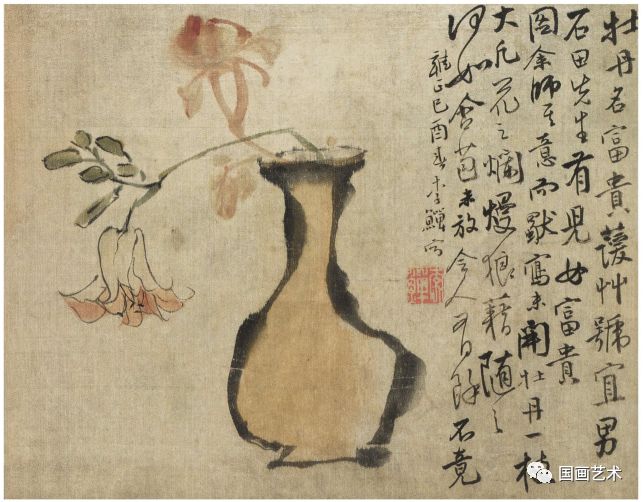 牡丹名富貴蘐艸號宜男
石田先生有兒女富貴
圖余師其意而寫未開牡丹一枝
大凡花之爛熳狼藉隨之
何如含苞未放令人有餘不竟
雍正己酉春李鱓寫
国画艺术